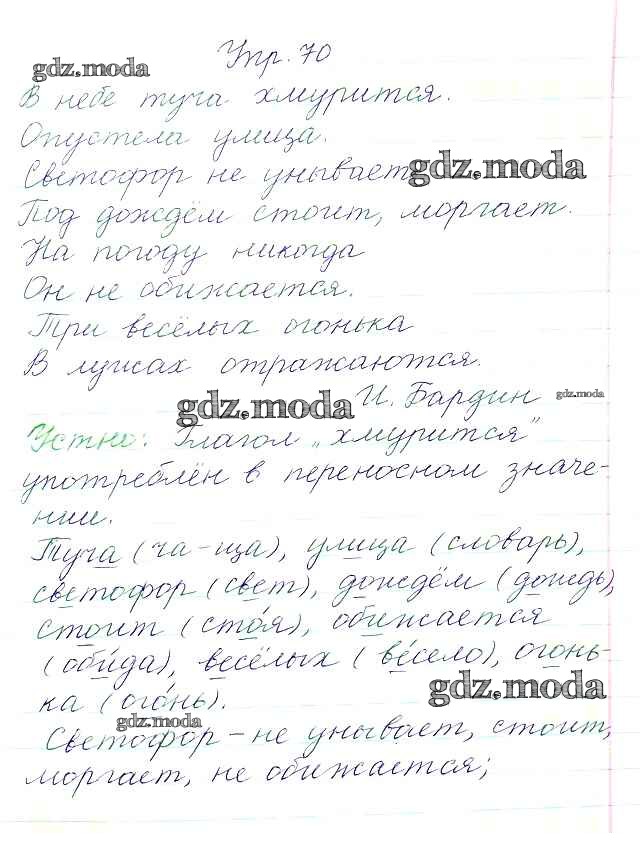 Упр. 70
gdz.moda
В небе туча хмурится.
Опустела улица.
Светофор не унывает
gdz.moda
Под дождём стоит, моргает.
На погоду никогда
Он не обижается.
Три весёлых огонька
В лужах отражаются.
gdz.moda И. Бардин gdz.moda
Устно: Глагол „хмурится"
употреблён в переносном значе-
нии.
Туча (ча-ща), улица (словарь),
светофор (свет), дождём (дождь),
стоит (сто́я), обижается
(оби́да), весёлых (ве́село), огонь-
ка (ого́нь).
gdz.moda
gdz.moda
Светофор - не унывает, стоит,
моргает, не обижается;